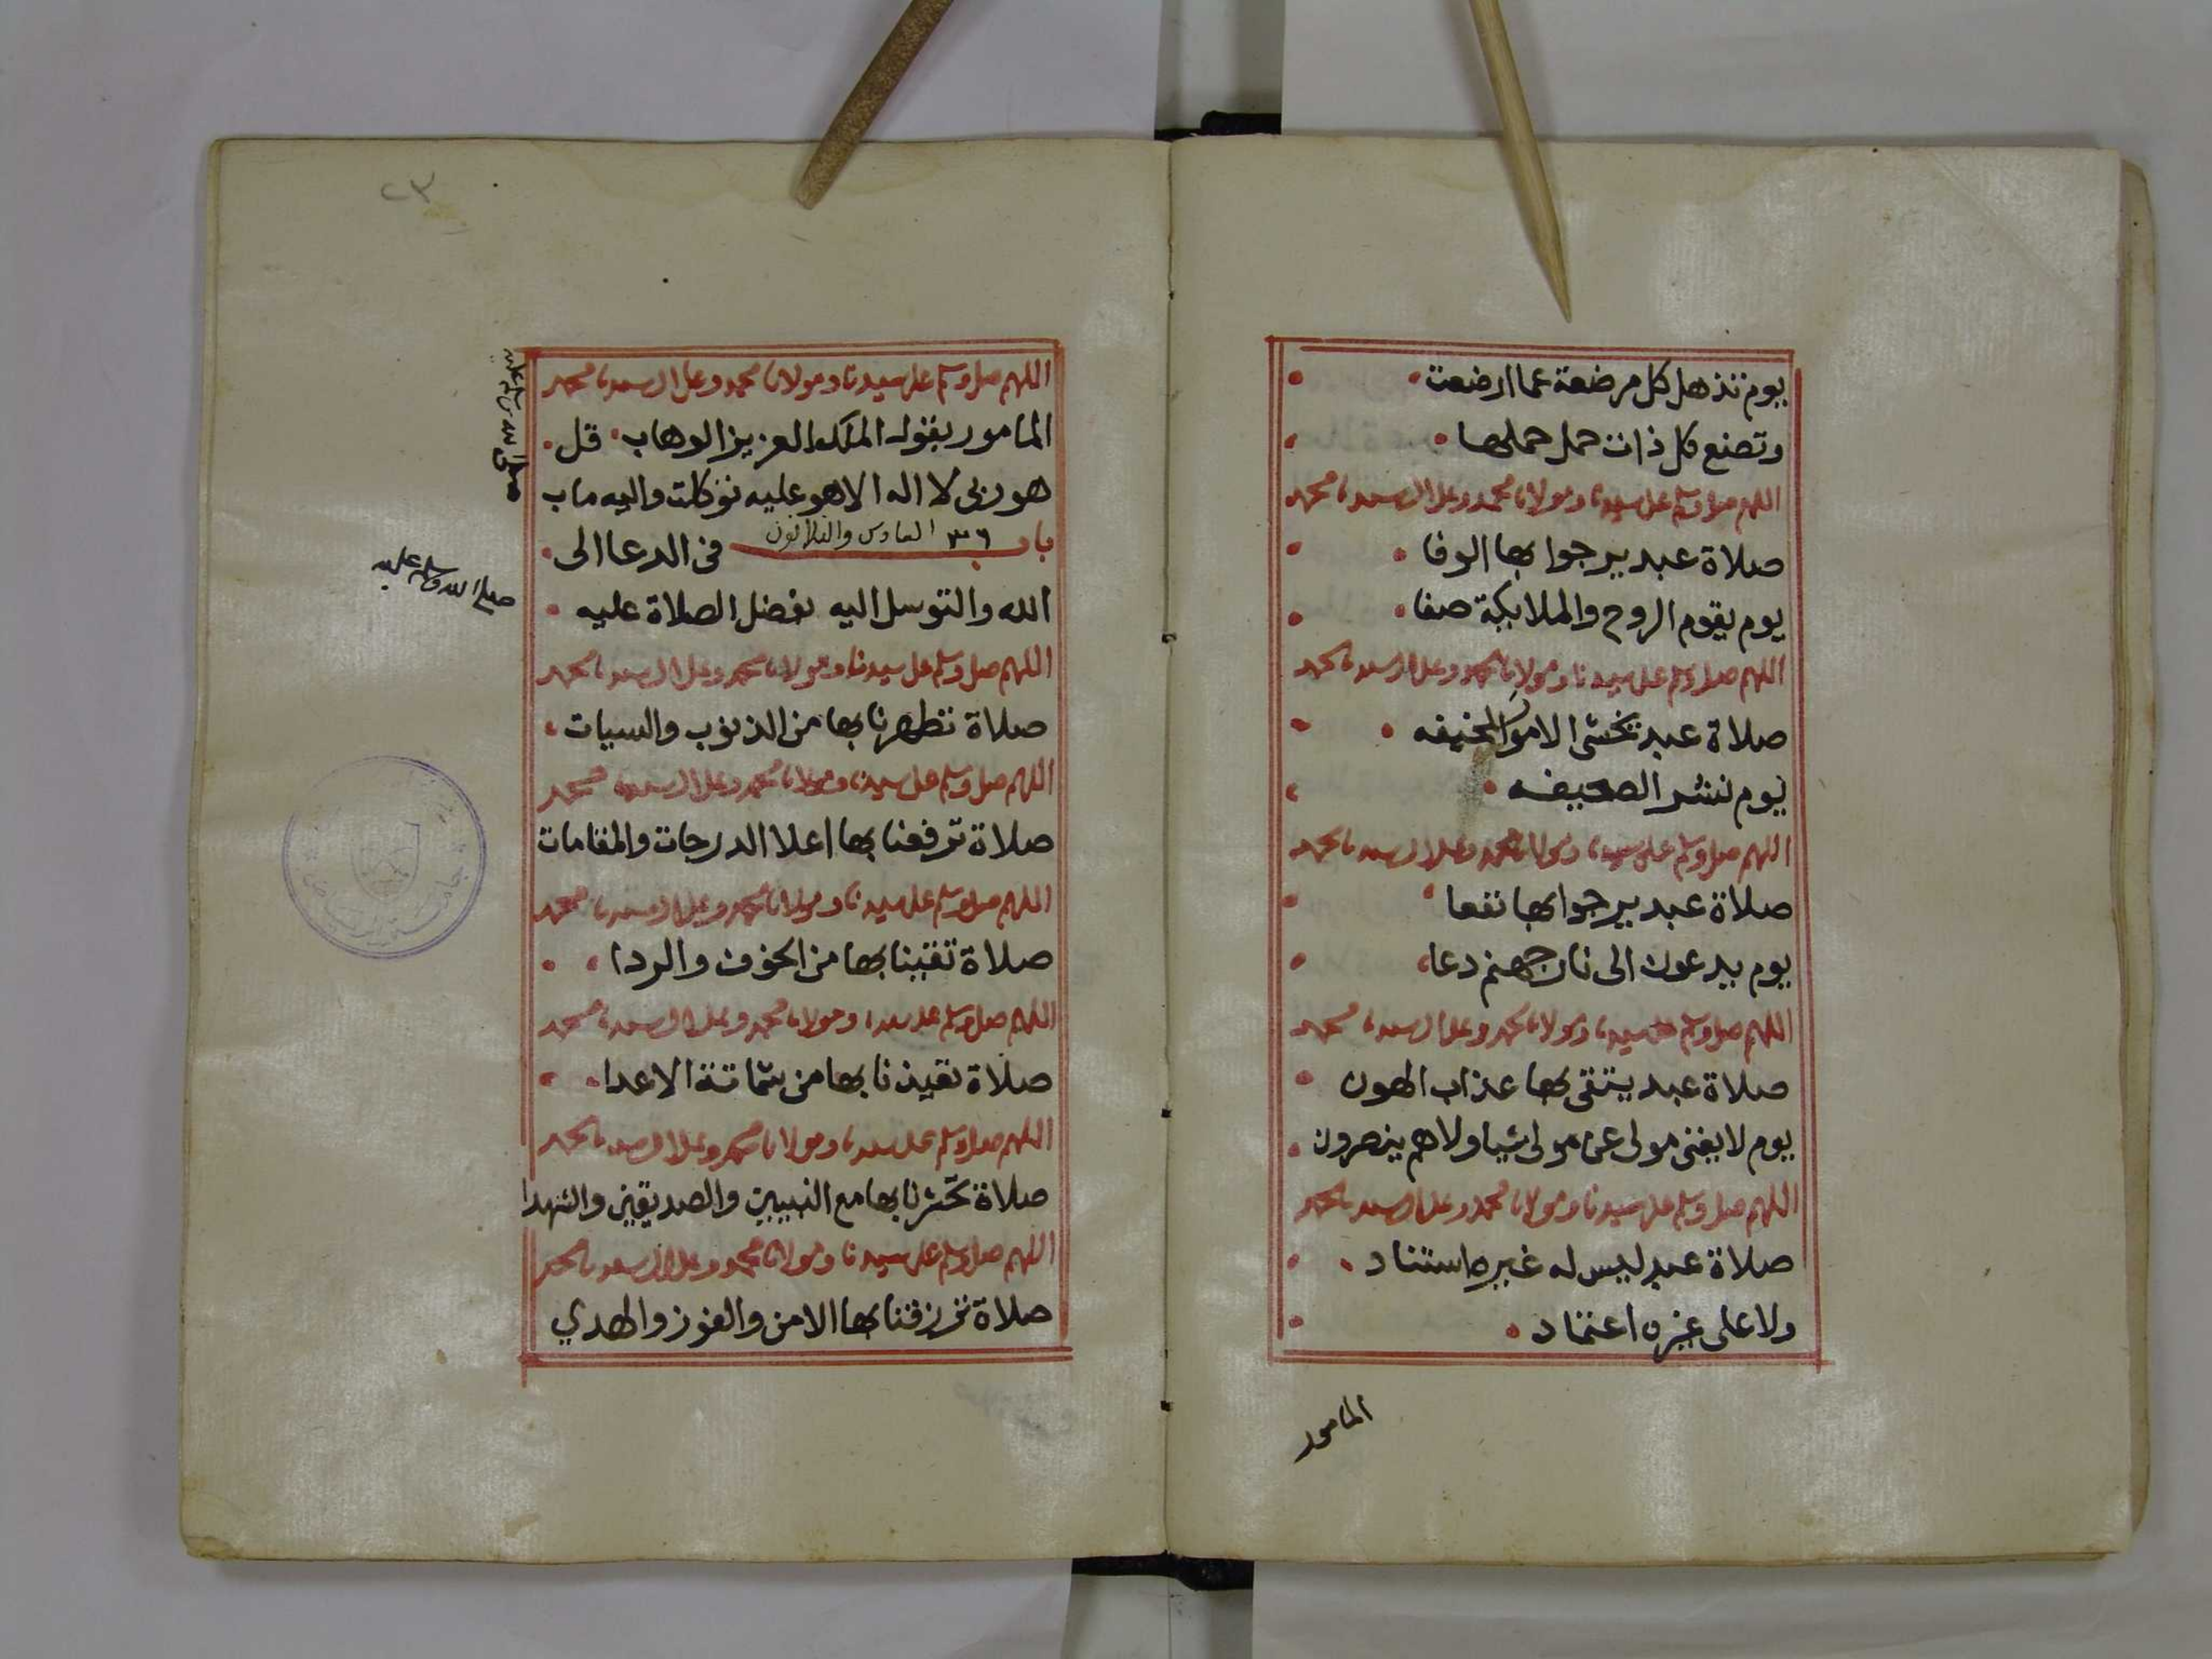 يوم تذهل كل مرضعة عما ارضعت
وتضع كل ذات حمل حملها
اللهم صل وسلم على سيدنا ومولانا محمد وعلى ال سيدنا محمد
صلاة عبد يرجوا بها الوفا
يوم يقوم الروح والملايكة صفا
اللهم صل وسلم على سيدنا ومولانا محمد وعلى ال سيدنا محمد
صلاة عبد يخشى الامور المخيفه
يوم نشر الصحيفه
اللهم صل وسلم على سيدنا ومولانا محمد وعلى ال سيدنا محمد
صلاة عبد يرجوا بها نفعا
يوم يدعون الى نار جهنم دعا
اللهم صل وسلم على سيدنا ومولانا محمد وعلى ال سيدنا محمد
صلاة عبد يتقى بها عذاب الهون
يوم لا يغنى مولى عن مولى شيا ولا هم ينصرون
اللهم صل وسلم على سيدنا ومولانا محمد وعلى ال سيدنا محمد
صلاة عبد ليس له غيره استناد
ولا على غيره اعتماد
المامور
٢٣
اللهم صل وسلم على سيدنا ومولانا محمد وعلى ال سيدنا محمد
المامور بقول الملك العزيز الوهاب قل
هو ربى لا اله الا هو عليه توكلت واليه ماب
باب ٣٦ السادس والثلاثون فى الدعا الى
الله والتوسل اليه بفضل الصلاة عليه
صلى الله وسلم عليه
اللهم صل وسلم على سيدنا ومولانا محمد وعلى ال سيدنا محمد
صلاة تطهرنا بها من الذنوب والسيات
اللهم صل وسلم على سيدنا ومولانا محمد وعلى ال سيدنا محمد
صلاة ترفعنا بها اعلا الدرجات والمقامات
اللهم صل وسلم على سيدنا ومولانا محمد وعلى ال سيدنا محمد
صلاة تقينا بها من الخوف والردا
اللهم صل وسلم على سيدنا ومولانا محمد وعلى ال سيدنا محمد
صلاة تعيذنا بها من شماتة الاعدا
اللهم صل وسلم على سيدنا ومولانا محمد وعلى ال سيدنا محمد
صلاة تحشرنا بها مع النبيين والصديقين والشهدا
اللهم صل وسلم على سيدنا ومولانا محمد وعلى ال سيدنا محمد
صلاة ترزقنا بها الامن والفوز والهدي